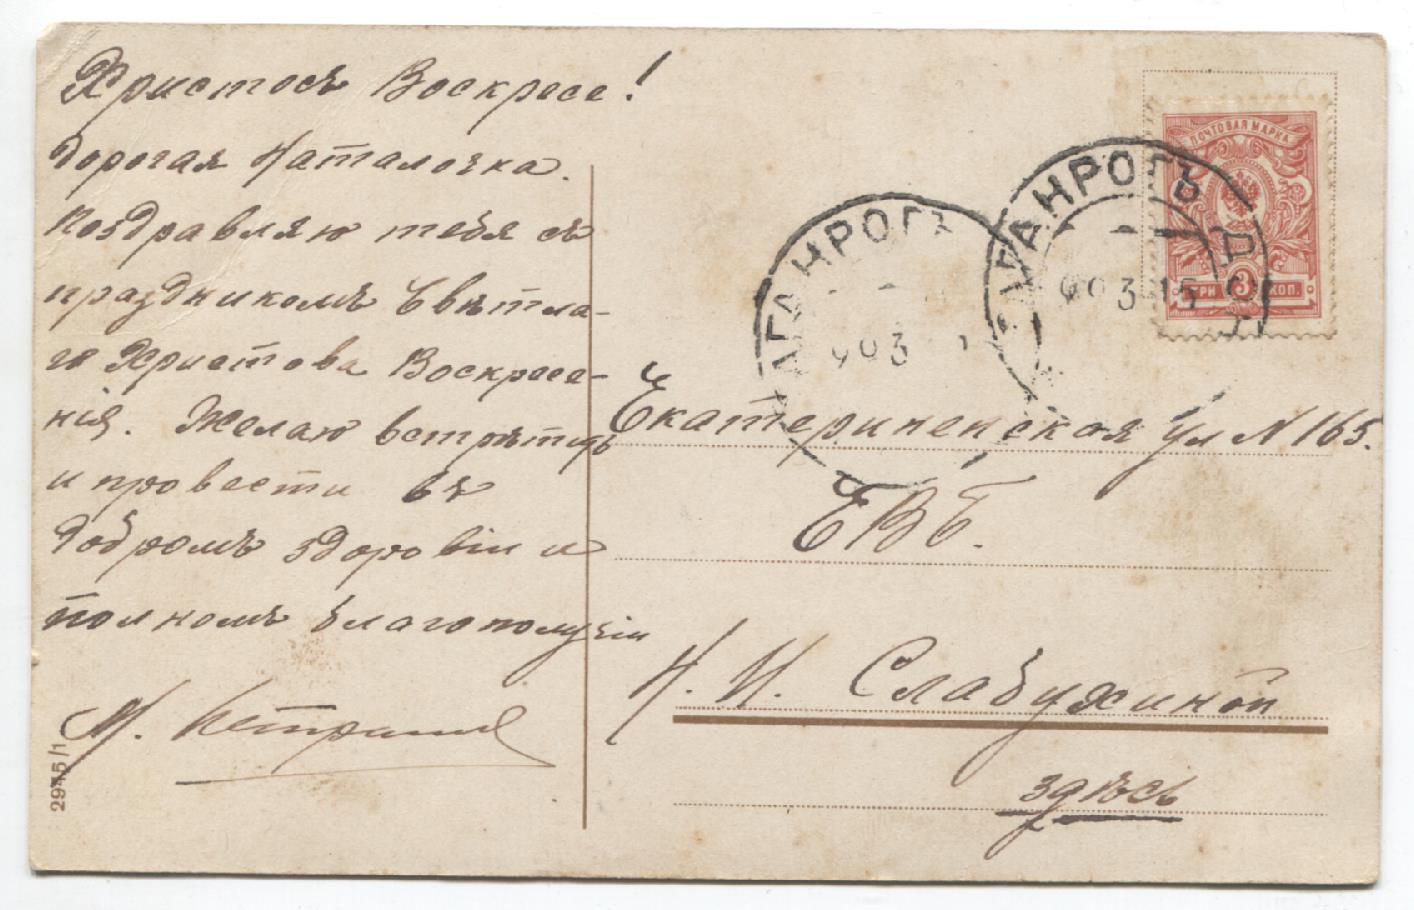 Христосъ Воскресе!
Дорогая Наталочка.
Поздравляю тебя съ
праздникомъ Свѣтла-
го Христова Воскресе-
нія. Желаю встрѣтить
и провести въ
добромъ здоровіи и
полномъ благополучіи
М.
2945/1
ПОЧТОВАЯ МАРКА
ТРИ 3 КОП.
ТАГАНРОГЪ
ТАГАНРОГЪ Д.О.
Екатериненская ул N 165.
ЕВБ.
Н. И. Слабухиной
здѣсь